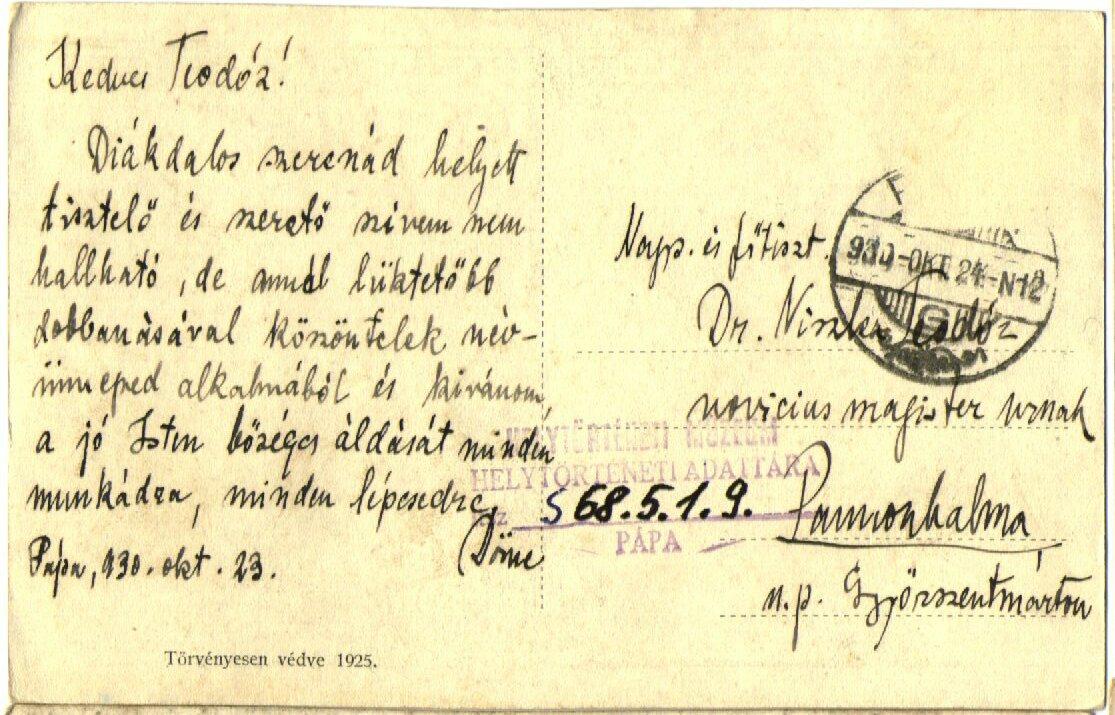 Kedves Teodóz!
Diákdalos szerenád helyett
tisztelő és szerető szivem nem
hallható, de annál lüktetőbb
dobbanásával köszöntelek név-
ünneped alkalmából és kivánom
a jó Isten bőséges áldását minden
munkádra, minden lépésedre.
Döme
Pápa, 930. okt. 23.
Törvényesen védve 1925.
930-OKT.24.-N12
Nagys. és főtiszt.
Dr. Niszler Teodóz
novicius magister urnak
Pannonhalma
u.p. Győrszentmárton
HELYTÖRTÉNETI MÚZEUM
HELYTÖRTÉNETI ADATTÁRA
S 68.5.1.9.
PÁPA